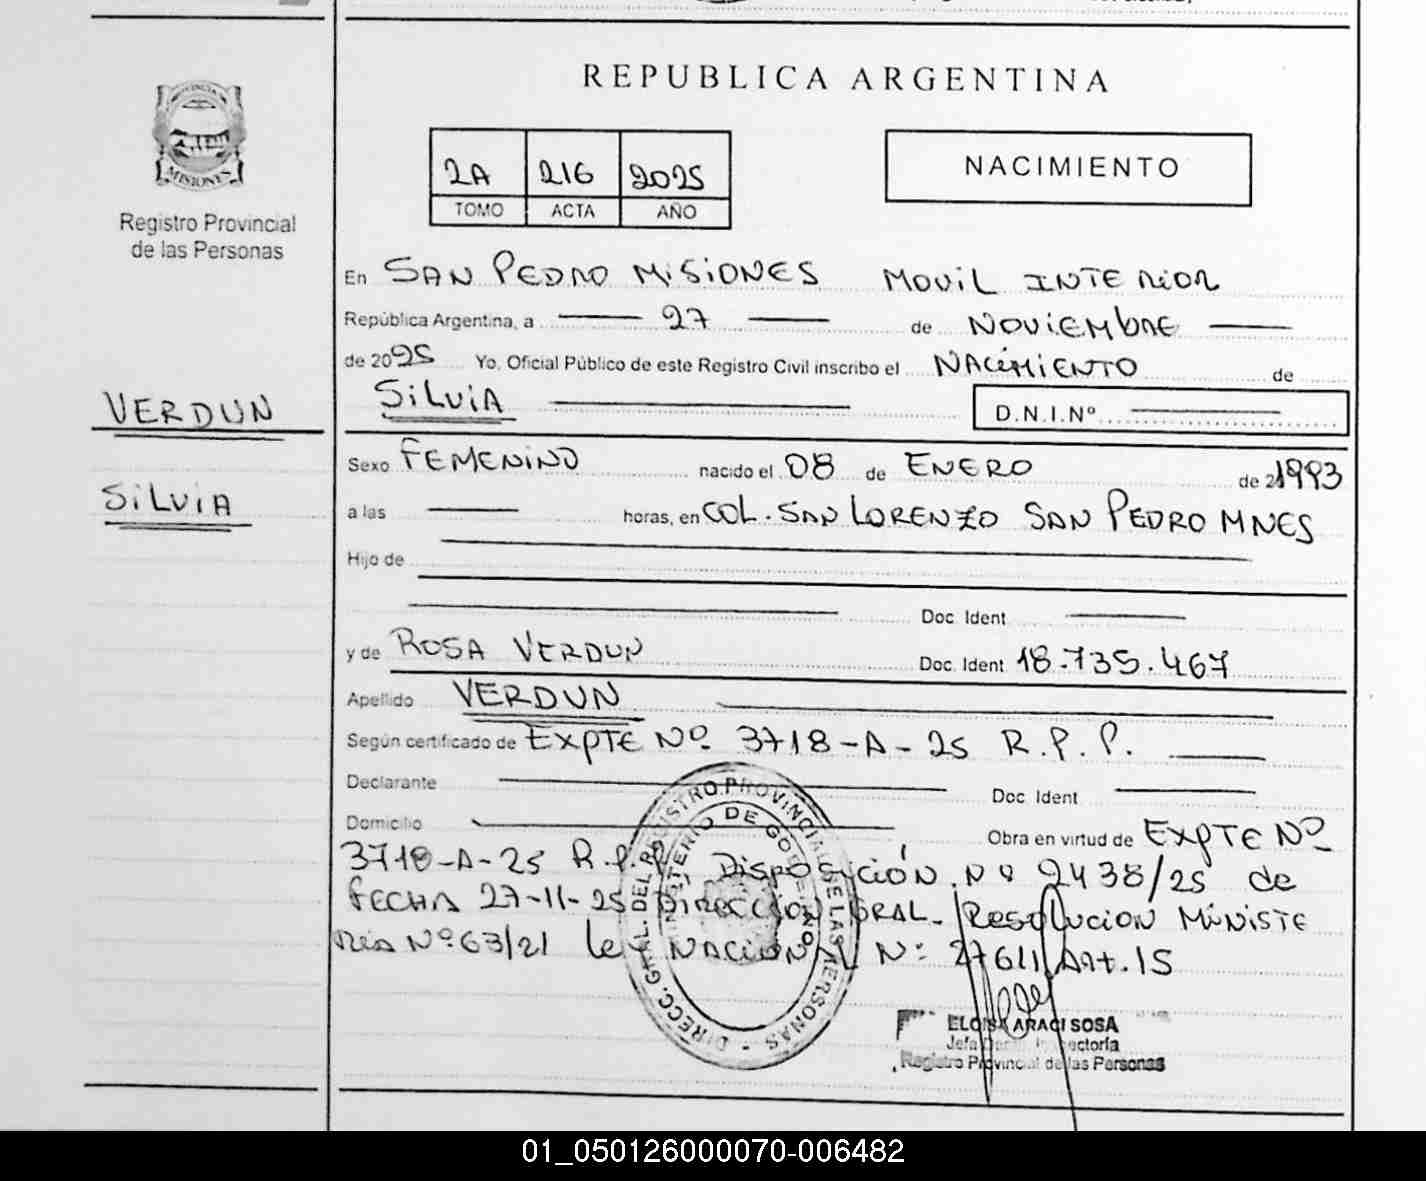 REPUBLICA ARGENTINA
2A 216 2025
TOMO ACTA AÑO
NACIMIENTO
MISIONES
Registro Provincial
de las Personas
En SAN PEDRO MISIONES MOVIL INTERIOR
República Argentina, a 27 de NOVIEMBRE
de 2025 Yo, Oficial Público de este Registro Civil inscribo el NACIMIENTO de
SILVIA D.N.I.Nº
VERDUN
SILVIA
Sexo FEMENINO nacido el 08 de ENERO de 21993
a las horas, en COL. SAN LORENZO SAN PEDRO MNES
Hijo de
Doc. Ident
y de ROSA VERDUN Doc. Ident 18.735.467
Apellido VERDUN
Según certificado de EXPTE Nº 3718-A-25 R.P.P.
Declarante Doc. Ident
Domicilio Obra en virtud de EXPTE Nº
3718-A-25 R.P.P. DISPOSICIÓN Nº 2438/25 de
FECHA 27-11-25 DIRECCION GRAL. RESOLUCION MINISTE
RIA Nº 63/21 LEY NACIONAL Nº 27611 Art. 15
DIRECC. GRAL. DEL REGISTRO PROVINCIAL DE LAS PERSONAS
MINISTERIO DE GOBIERNO
ELOISA ARACI SOSA
Jefa Inspectoría
Registro Provincial de las Personas
01_050126000070-006482